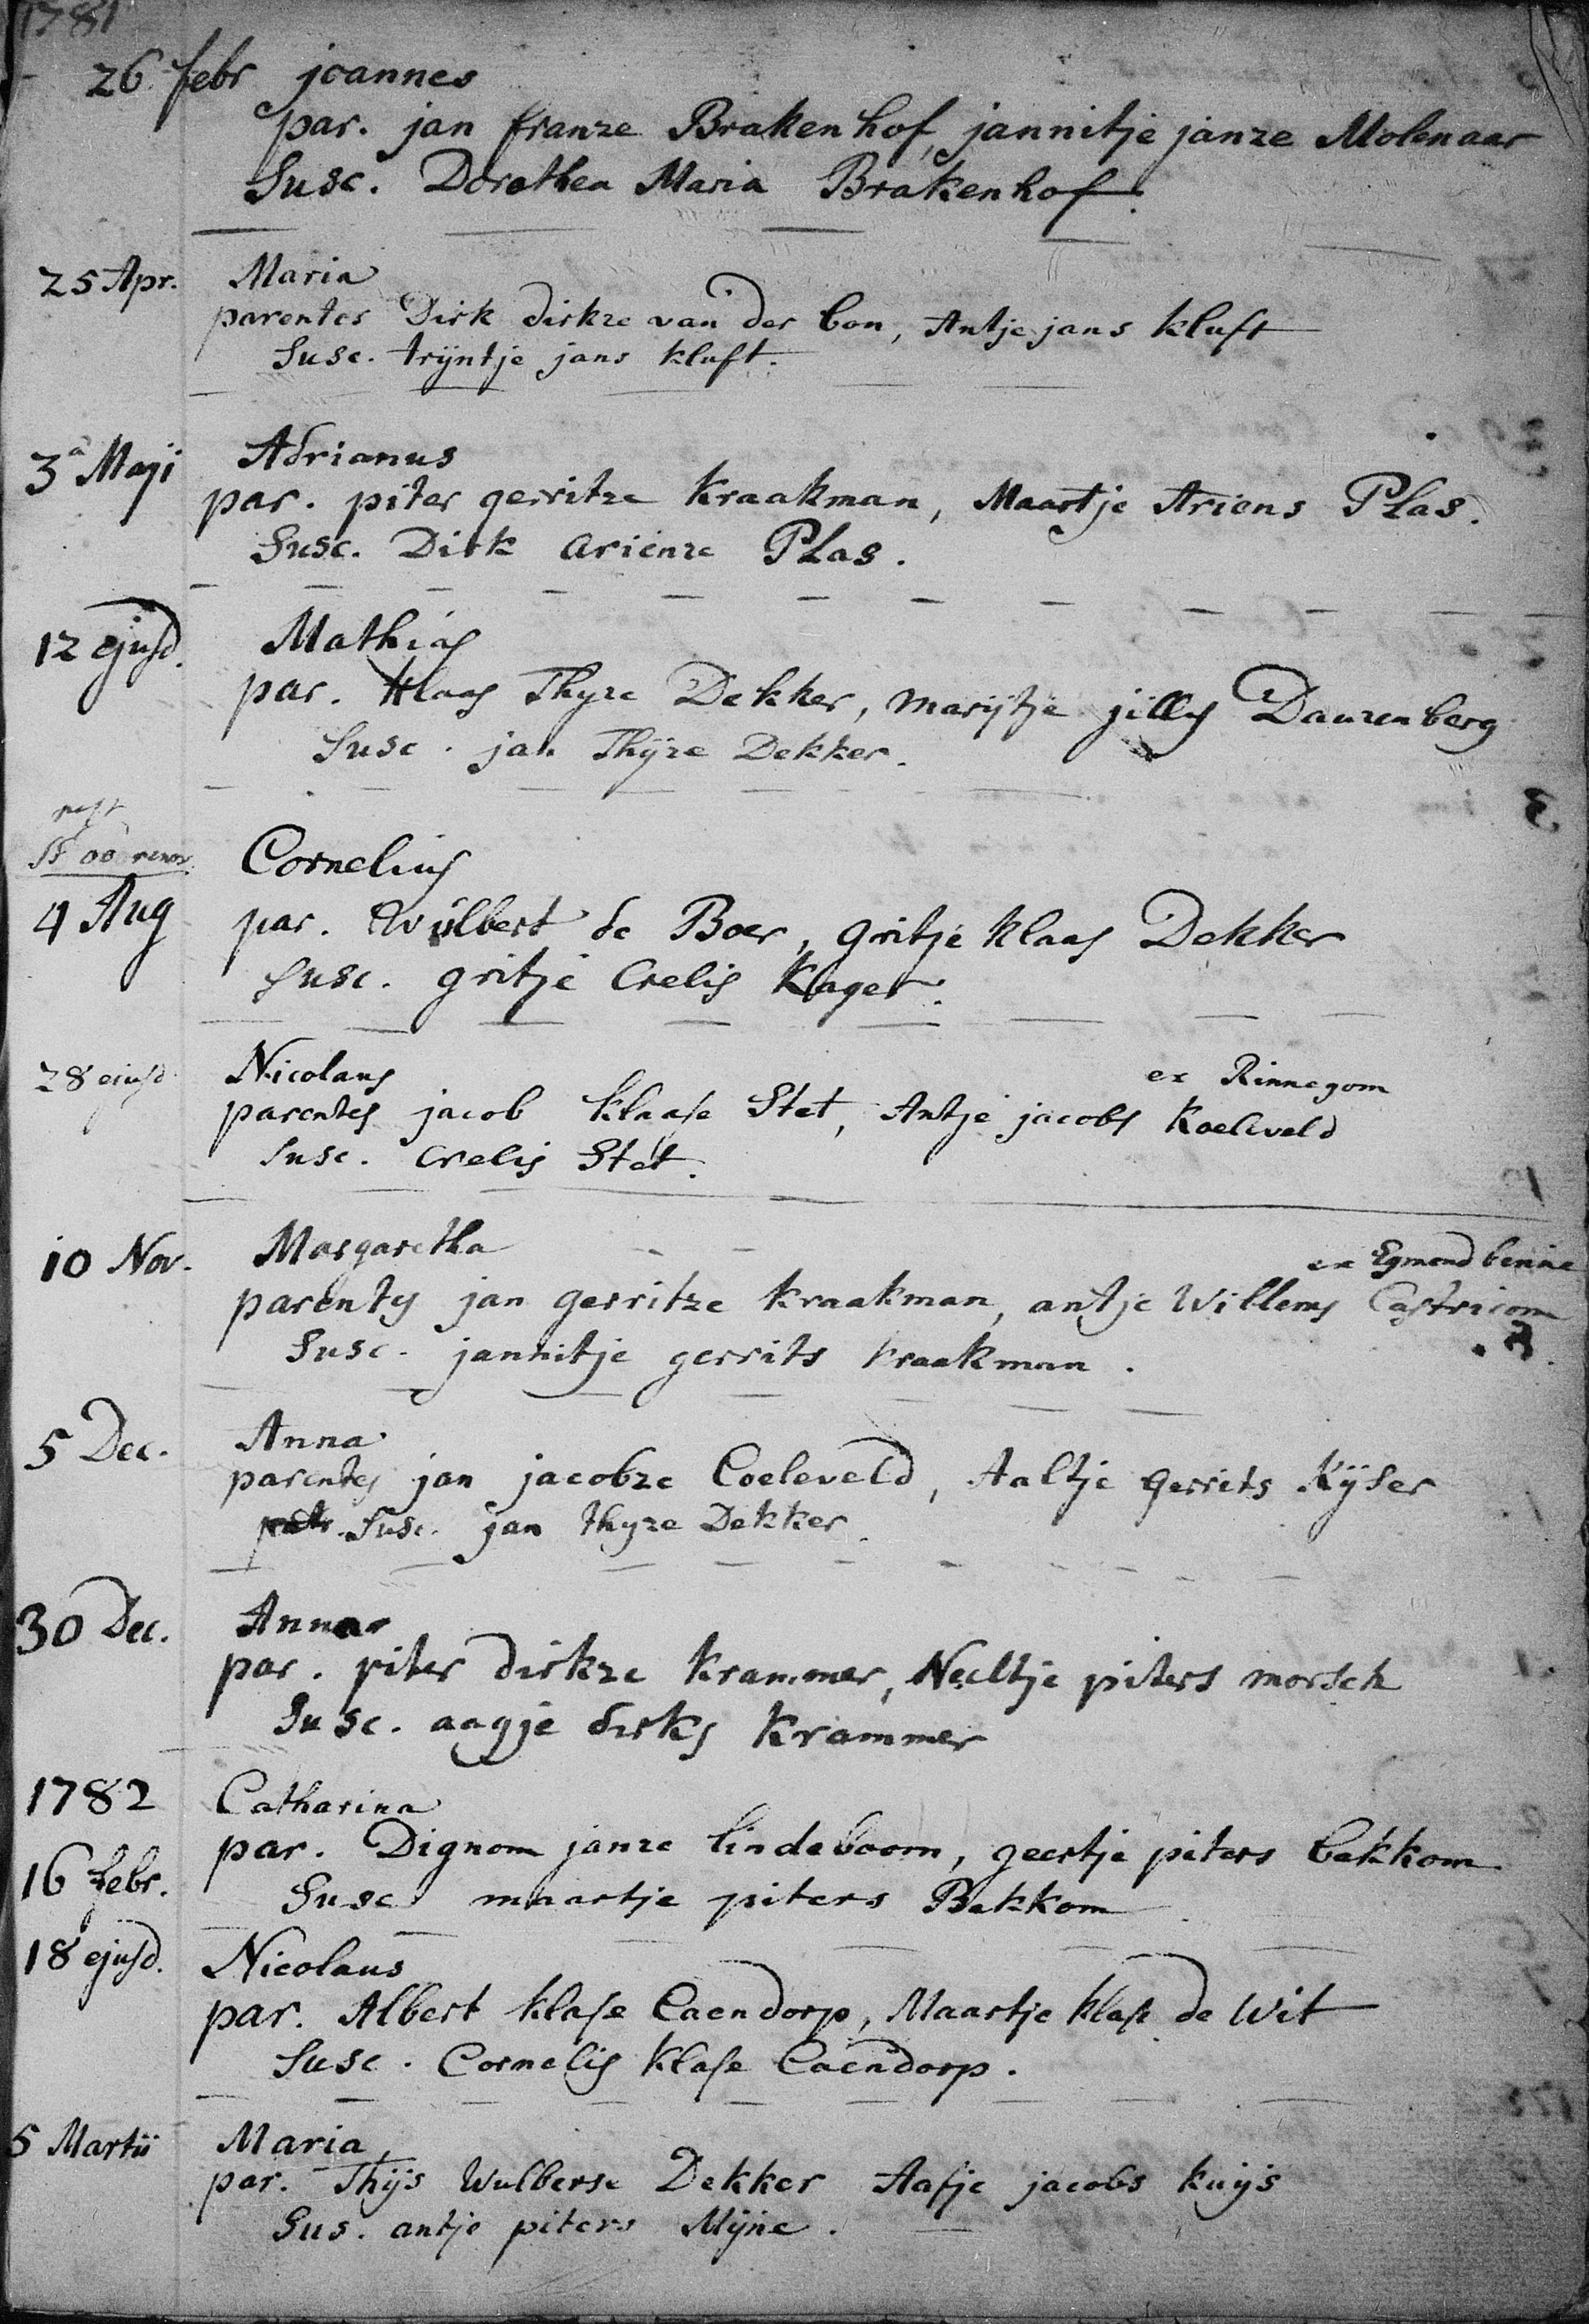 1781
26 febr joannes
par. jan franze Brakenhof, jannitje janze Molenaar
Susc. Dorothea Maria Brakenhof.
25 Apr. Maria
parentes Dirk dirkze van der bon, Antje jans kluft
Susc. trijntje jans kluft.
3ª Maji Adrianus
par. piter gerritze Kraakman, Maartje Ariens Plas.
Susc. Dirk arienze Plas.
12 ejusd. Mathias
par. Klaas Thyze Dekker, Marijtje jillis Dauzenberg
Susc. jan Thijze Dekker.
Cornelius
4 Aug par. Wulbert de Boer, gritje klaas Dekker
Susc. gritje Crelis Kager.
28 ejusd Nicolaus ex Rinnegom
parentes jacob klaase Stet, Antje jacobs Koeleveld
Susc. Crelis Stet.
10 Nov. Margaretha ex Egmond binne
parentes jan gerritze kraakman, antje Willems Castricom
Susc. jannitje gerrits kraakman.
5 Dec. Anna
parentes jan jacobze Coeleveld, Aaltje gerrits Kijser
Susc. jan thyze Dekker.
30 Dec. Anna
par. piter dirkze krammer, Neeltje piters morsch
Susc. aagje dirks krammer
1782 Catharina
par. Dignom janze lindeboom, geertje piters bekkom.
16 febr. Susc maartje piters Bekkom
18 ejusd. Nicolaus
par. Albert klase Caendorp, Maartje klase de Wit
Susc. Cornelis klase Caendorp.
5 Martii Maria
par. Thijs Wulberse Dekker Aafje jacobs kuijs
Sus. antje piters Mijne.